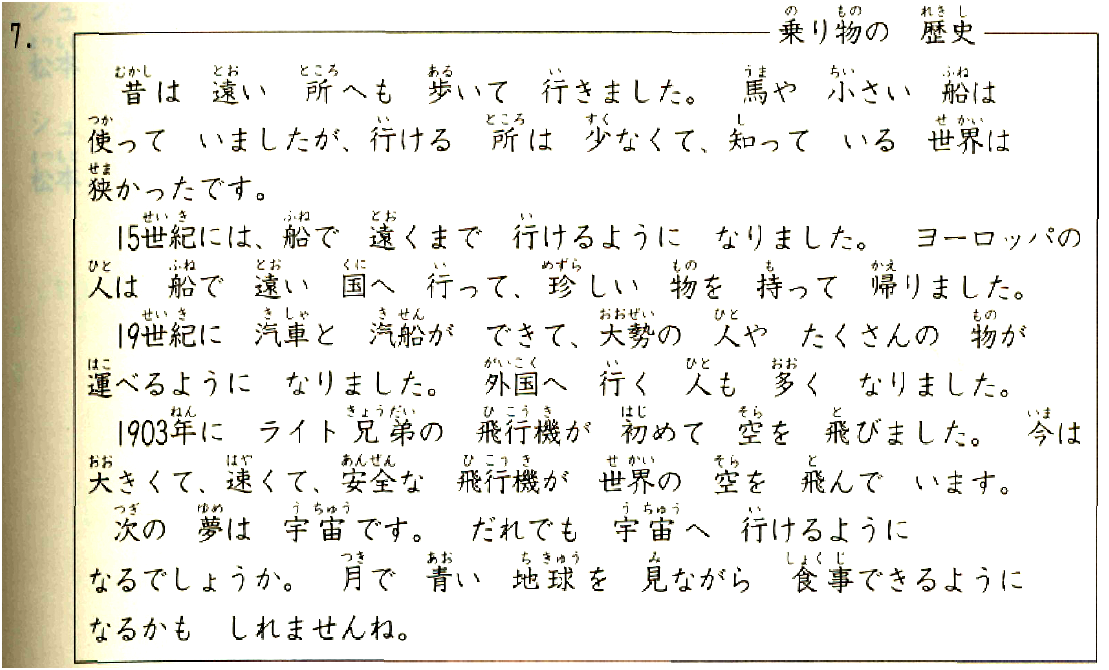 7.
乗り物の 歴史
昔は 遠い 所へも 歩いて 行きました。 馬や 小さい 船は
使って いましたが、行ける 所は 少なくて、知って いる 世界は
狭かったです。
15世紀には、船で 遠くまで 行けるように なりました。 ヨーロッパの
人は 船で 遠い 国へ 行って、珍しい 物を 持って 帰りました。
19世紀に 汽車と 汽船が できて、大勢の 人や たくさんの 物が
運べるように なりました。 外国へ 行く 人も 多く なりました。
1903年に ライト兄弟の 飛行機が 初めて 空を 飛びました。 今は
大きくて、速くて、安全な 飛行機が 世界の 空を 飛んで います。
次の 夢は 宇宙です。 だれでも 宇宙へ 行けるように
なるでしょうか。 月で 青い 地球を 見ながら 食事できるように
なるかも しれませんね。